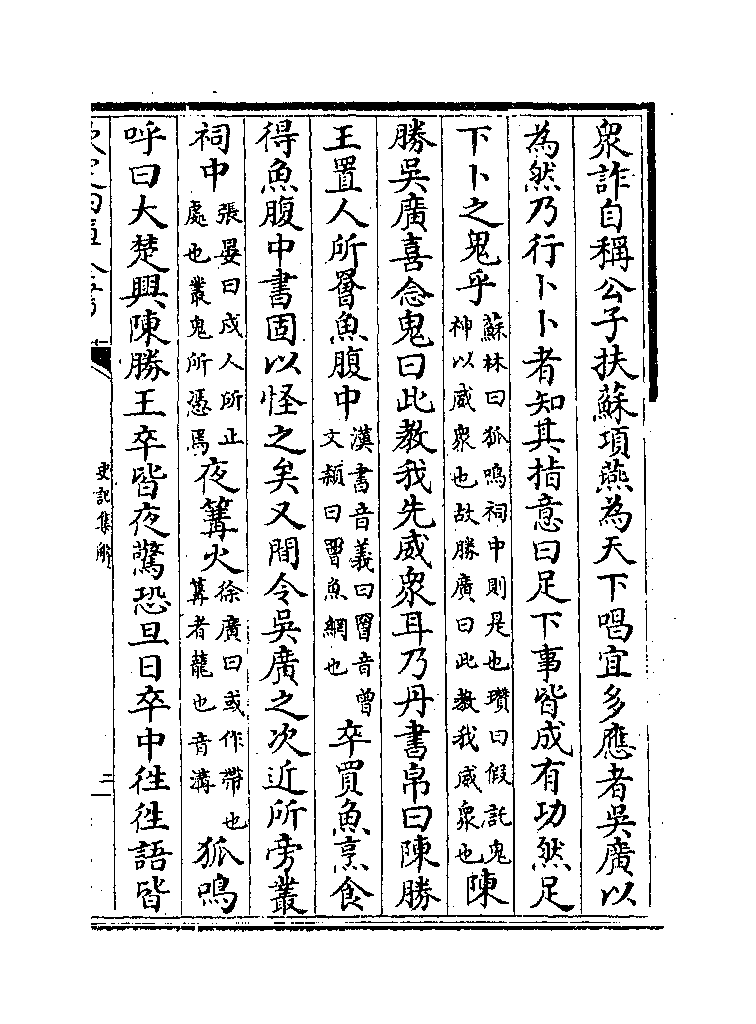 衆詐自稱公子扶蘇項燕為天下唱宜多應者吳廣以
為然乃行卜卜者知其指意曰足下事皆成有功然足
下卜之鬼乎蘇林曰狐鳴祠中則是也瓚曰假託鬼神以威衆也故勝廣曰此教我威衆也陳
勝吳廣喜念鬼曰此教我先威衆耳乃丹書帛曰陳勝
王置人所罾魚腹中漢書音義曰罾音曾文穎曰罾魚網也卒買魚烹食
得魚腹中書固以怪之矣又間令吳廣之次近所旁叢
祠中張晏曰戍人所止處也叢鬼所憑焉夜篝火徐廣曰或作帶也篝者籠也音溝狐鳴
呼曰大楚興陳勝王卒皆夜驚恐旦日卒中徃徃語皆
史記集解
二